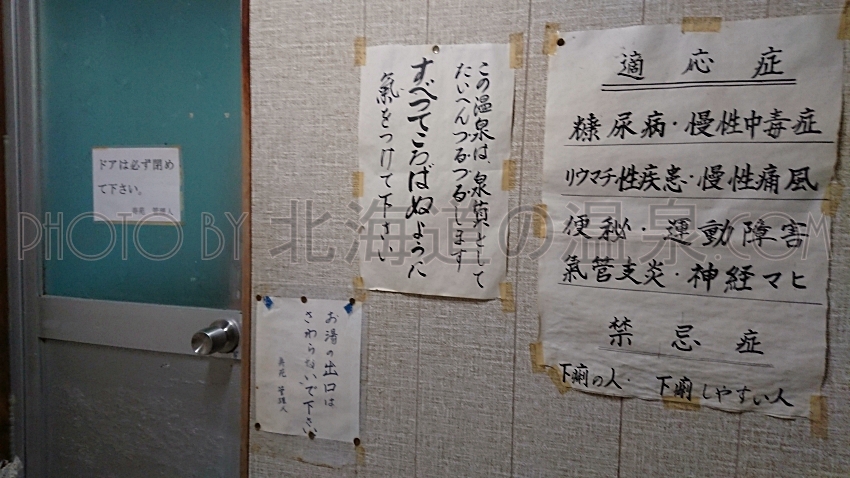 ドアは必ず閉め
て下さい。
管理人
この温泉は、泉質として
たいへんつるつるします
すべってころばぬように
氣をつけて下さい
お湯の出口は
さわらないで下さい
管理人
適応症
糖尿病・慢性中毒症
リウマチ性疾患・慢性痛風
便秘・運動障害
氣管支炎・神経マヒ
禁忌症
下痢の人・下痢しやすい人
PHOTO BY 北海道の温泉.COM